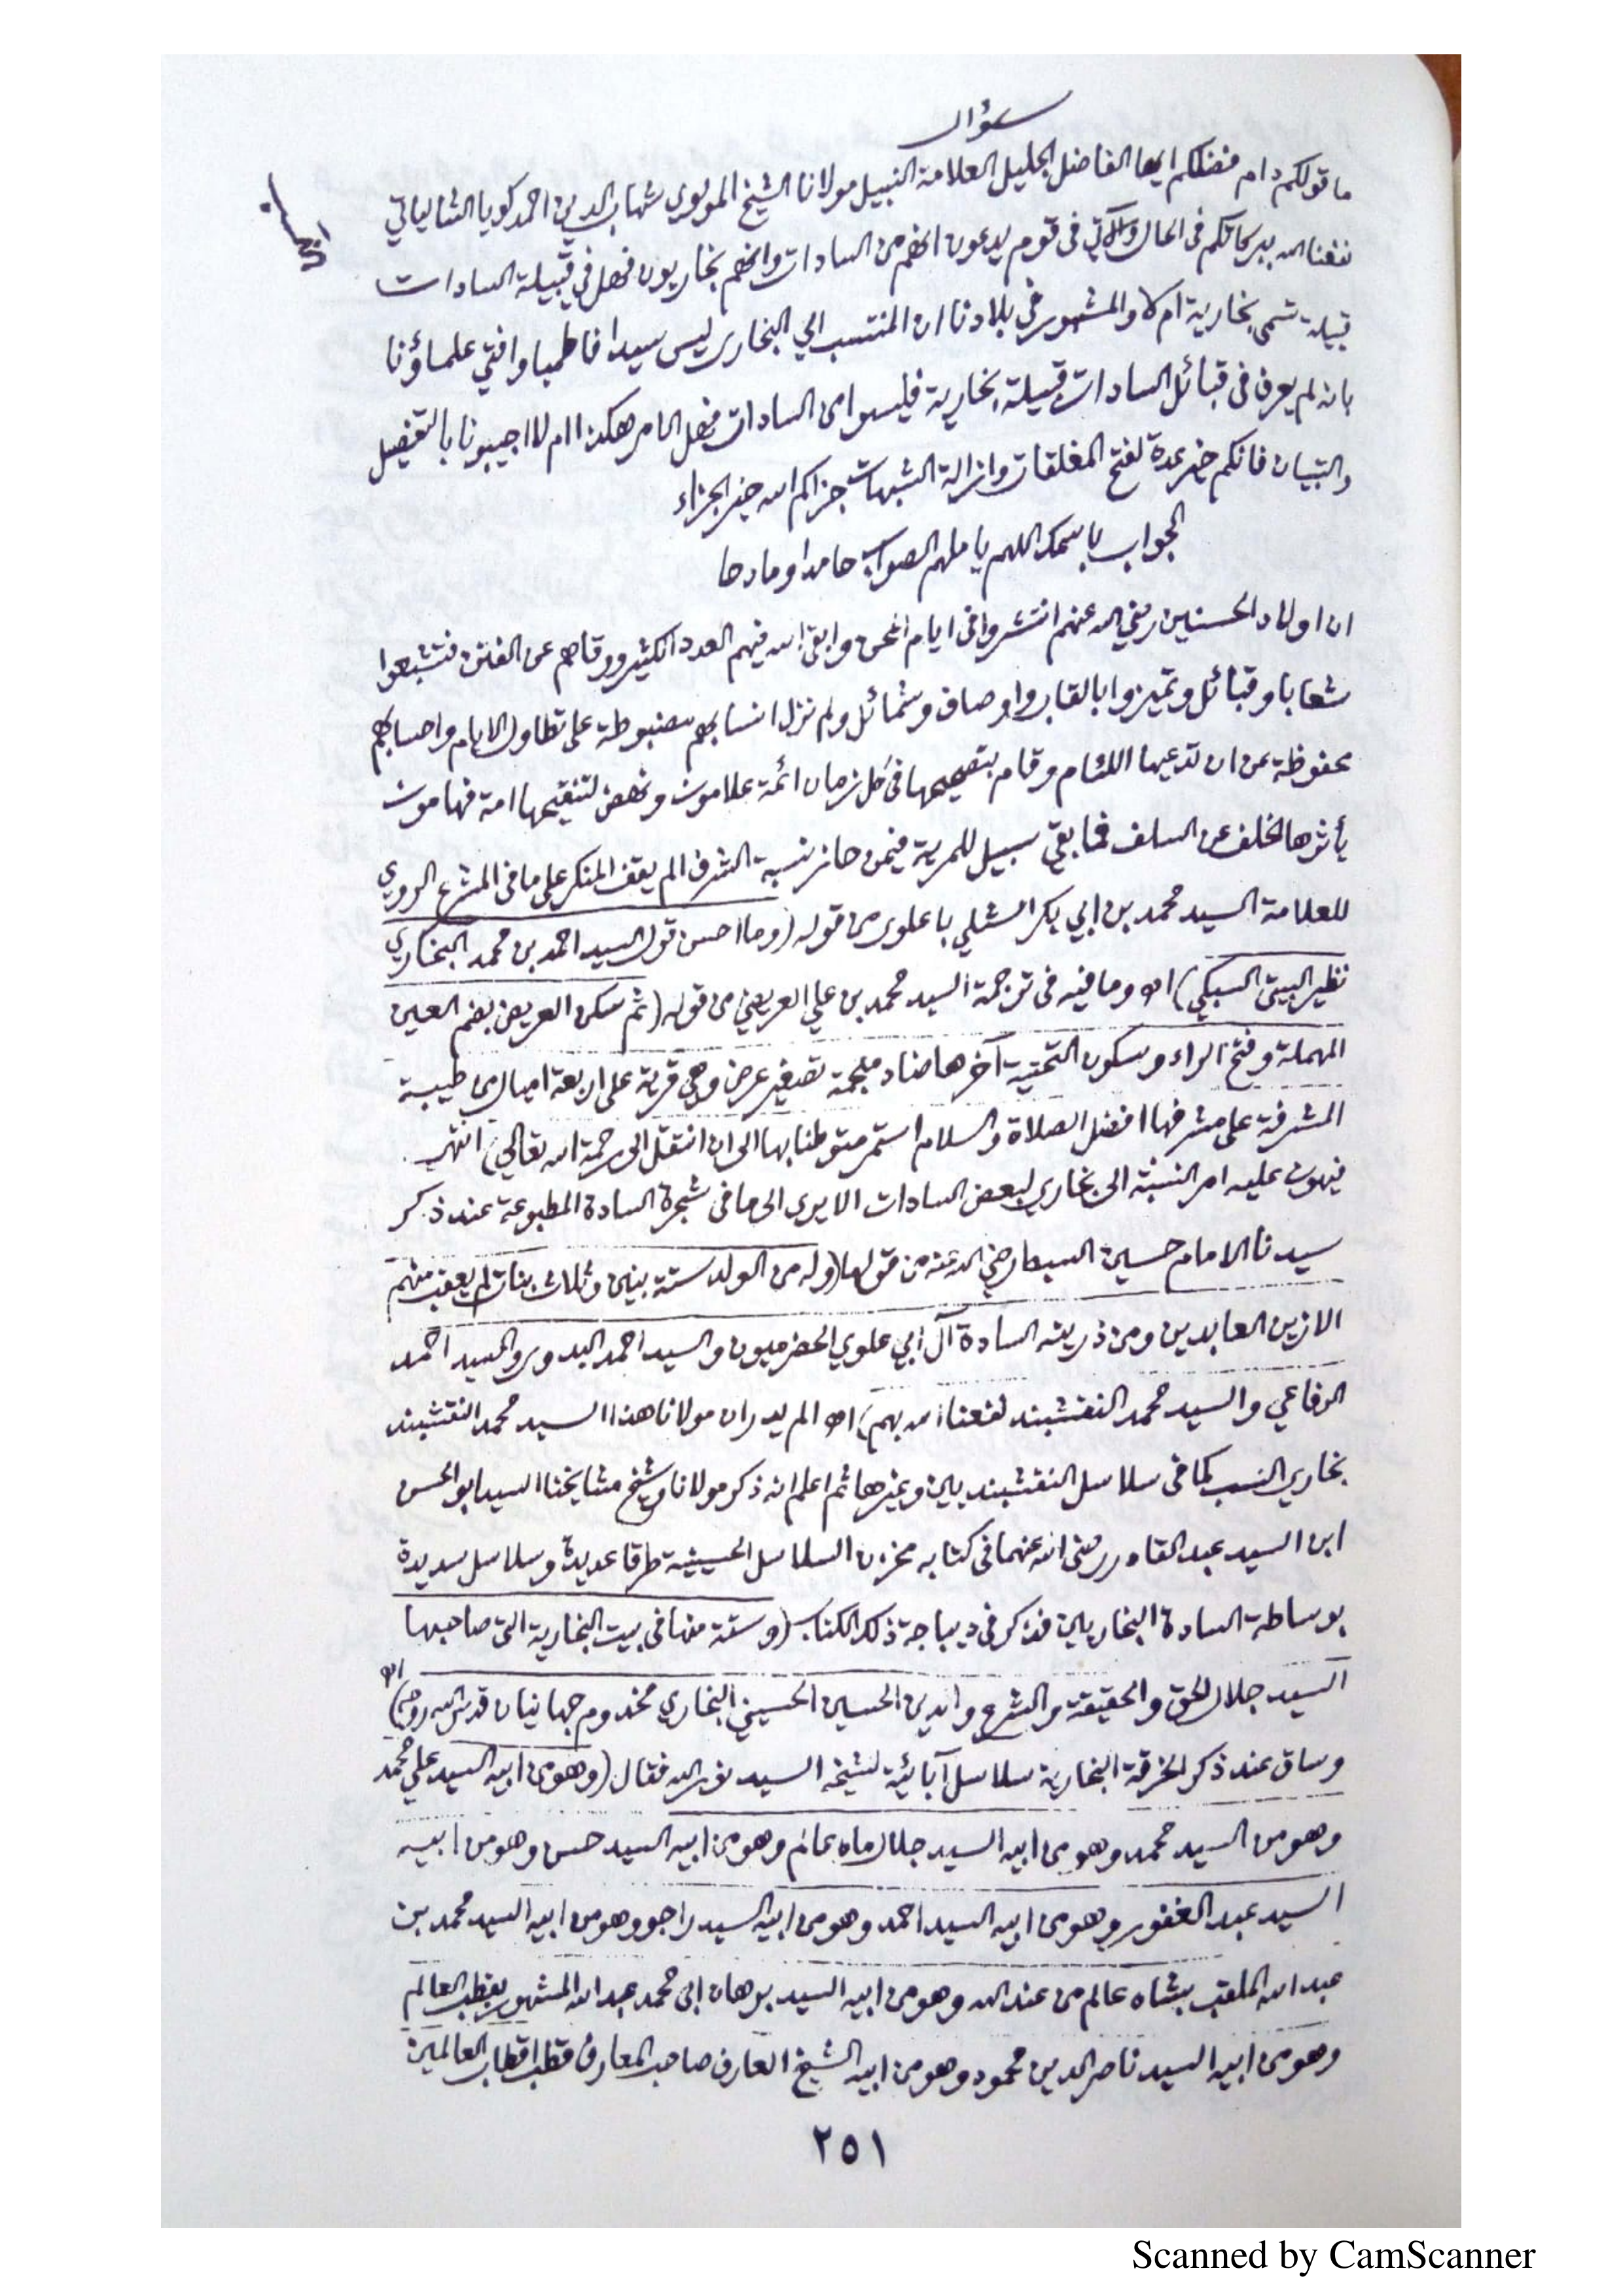 سؤال
ما قولكم دام فضلكم ايها الفاضل الجليل العلامة النبيل مولانا الشيخ المولوي شهاب الدين احمد كويا الشالياتي
نفعنا الله ببركاتكم في الحال والآتي في قوم يدعون انهم من السادات وانهم بخاريون فهل في قبيلة السادات
قبيلة تسمى بخارية ام لا والمشهور في بلادنا ان المنتسب الي البخارى ليس سيدا فاطميا وافتي علماؤنا
بانه لم يعرف في قبائل السادات قبيلة بخارية فليسوا من السادات فهل الامر هكذا ام لا اجيبونا بالتفصيل
والتبيان فانكم خير عدة لفتح المغلقات وازالة الشبهات جزاكم الله خير الجزاء
الجواب باسمك اللهم يا ملهم الصواب حامدا ومادحا
ان اولاد الحسنين رضي الله عنهم انتشروا في ايام المحن وابقى الله فيهم العدد الكثير ووقاهم عن الفتن فتشعبوا
شعابا وقبائل وتميزوا بالقاب واوصاف وشمائل ولم تزل انسابهم مضبوطة على تطاول الايام واحسابهم
محفوظة عن ان تدعيها اللئام وقام بتصحيحها في كل زمان ائمة علامون ونهض لتنقيحها امة فهامون
يأثرها الخلف عن السلف فما بقي سبيل للمرية فيمن حاز نسبة الشرف الم يقف المنكر على ما في المشرع الروي
للعلامة السيد محمد بن ابي بكر الشلي باعلوى من قوله (وما احسن قول السيد احمد بن محمد البخاري
نظير البيتى السبكي) اه وما فيه في ترجمة السيد محمد بن علي العريضي من قوله (ثم سكن العريض بضم العين
المهملة وفتح الراء وسكون التحتية آخرها ضاد معجمة تصغير عرض وهي قرية على اربعة اميال من طيبة
المشرفة على مشرفها افضل الصلاة والسلام استمر متوطنا بها الى ان انتقل الى رحمة الله تعالي) انتهى
فيهون عليه امر النسبة الى بخاري لبعض السادات الا يرى الى ما في شجرة السادة المطبوعة عند ذكر
سيدنا الامام حسين السبط رضي الله عنه من قولها (وله من الولد ستة بنين وثلاث بنات لم يعقب منهم
الا زين العابدين ومن ذريته السادة آل ابي علوي الحضرميون والسيد احمد البدوى والسيد احمد
الرفاعي والسيد محمد النقشبند نفعنا الله بهم) اه الم يدر ان مولانا هذا السيد محمد النقشبند
بخاري النسب كما في سلاسل النقشبنديين وغيرها ثم اعلم انه ذكر مولانا وشيخ مشايخنا السيد ابو الحسن
ابن السيد عبد القادر رضى الله عنهما في كتابه مخزن السلاسل الحسينية طرقا عديدة وسلاسل سديدة
بوساطة السادة البخاريين فذكر في ديباجة ذلك الكتاب (وستة منها في بيت البخارية التي صاحبها
السيد جلال الحق والحقيقة والشرع والدين الحسين الحسيني البخاري مخدوم جهانيان قدس الله روحه) اه
وساق عند ذكر الخرقة البخارية سلاسل آبائية لشيخه السيد نور الله فقال (وهو من ابيه السيد علي محمد
وهو من السيد محمد وهو من ابيه السيد جلال ماه عالم وهو من ابيه السيد حسن وهو من ابيه
السيد عبد الغفور وهو من ابيه السيد احمد وهو من ابيه السيد راجو وهو من ابيه السيد محمد بن
عبد الله الملقب بشاه عالم من عند الله وهو من ابيه السيد برهان ابى محمد عبد الله المشهور بقطب العالم
وهو من ابيه السيد ناصر الدين محمود وهو من ابيه الشيخ العارف صاحب المعارف قطب اقطاب العالمين
٢٥١
Scanned by CamScanner